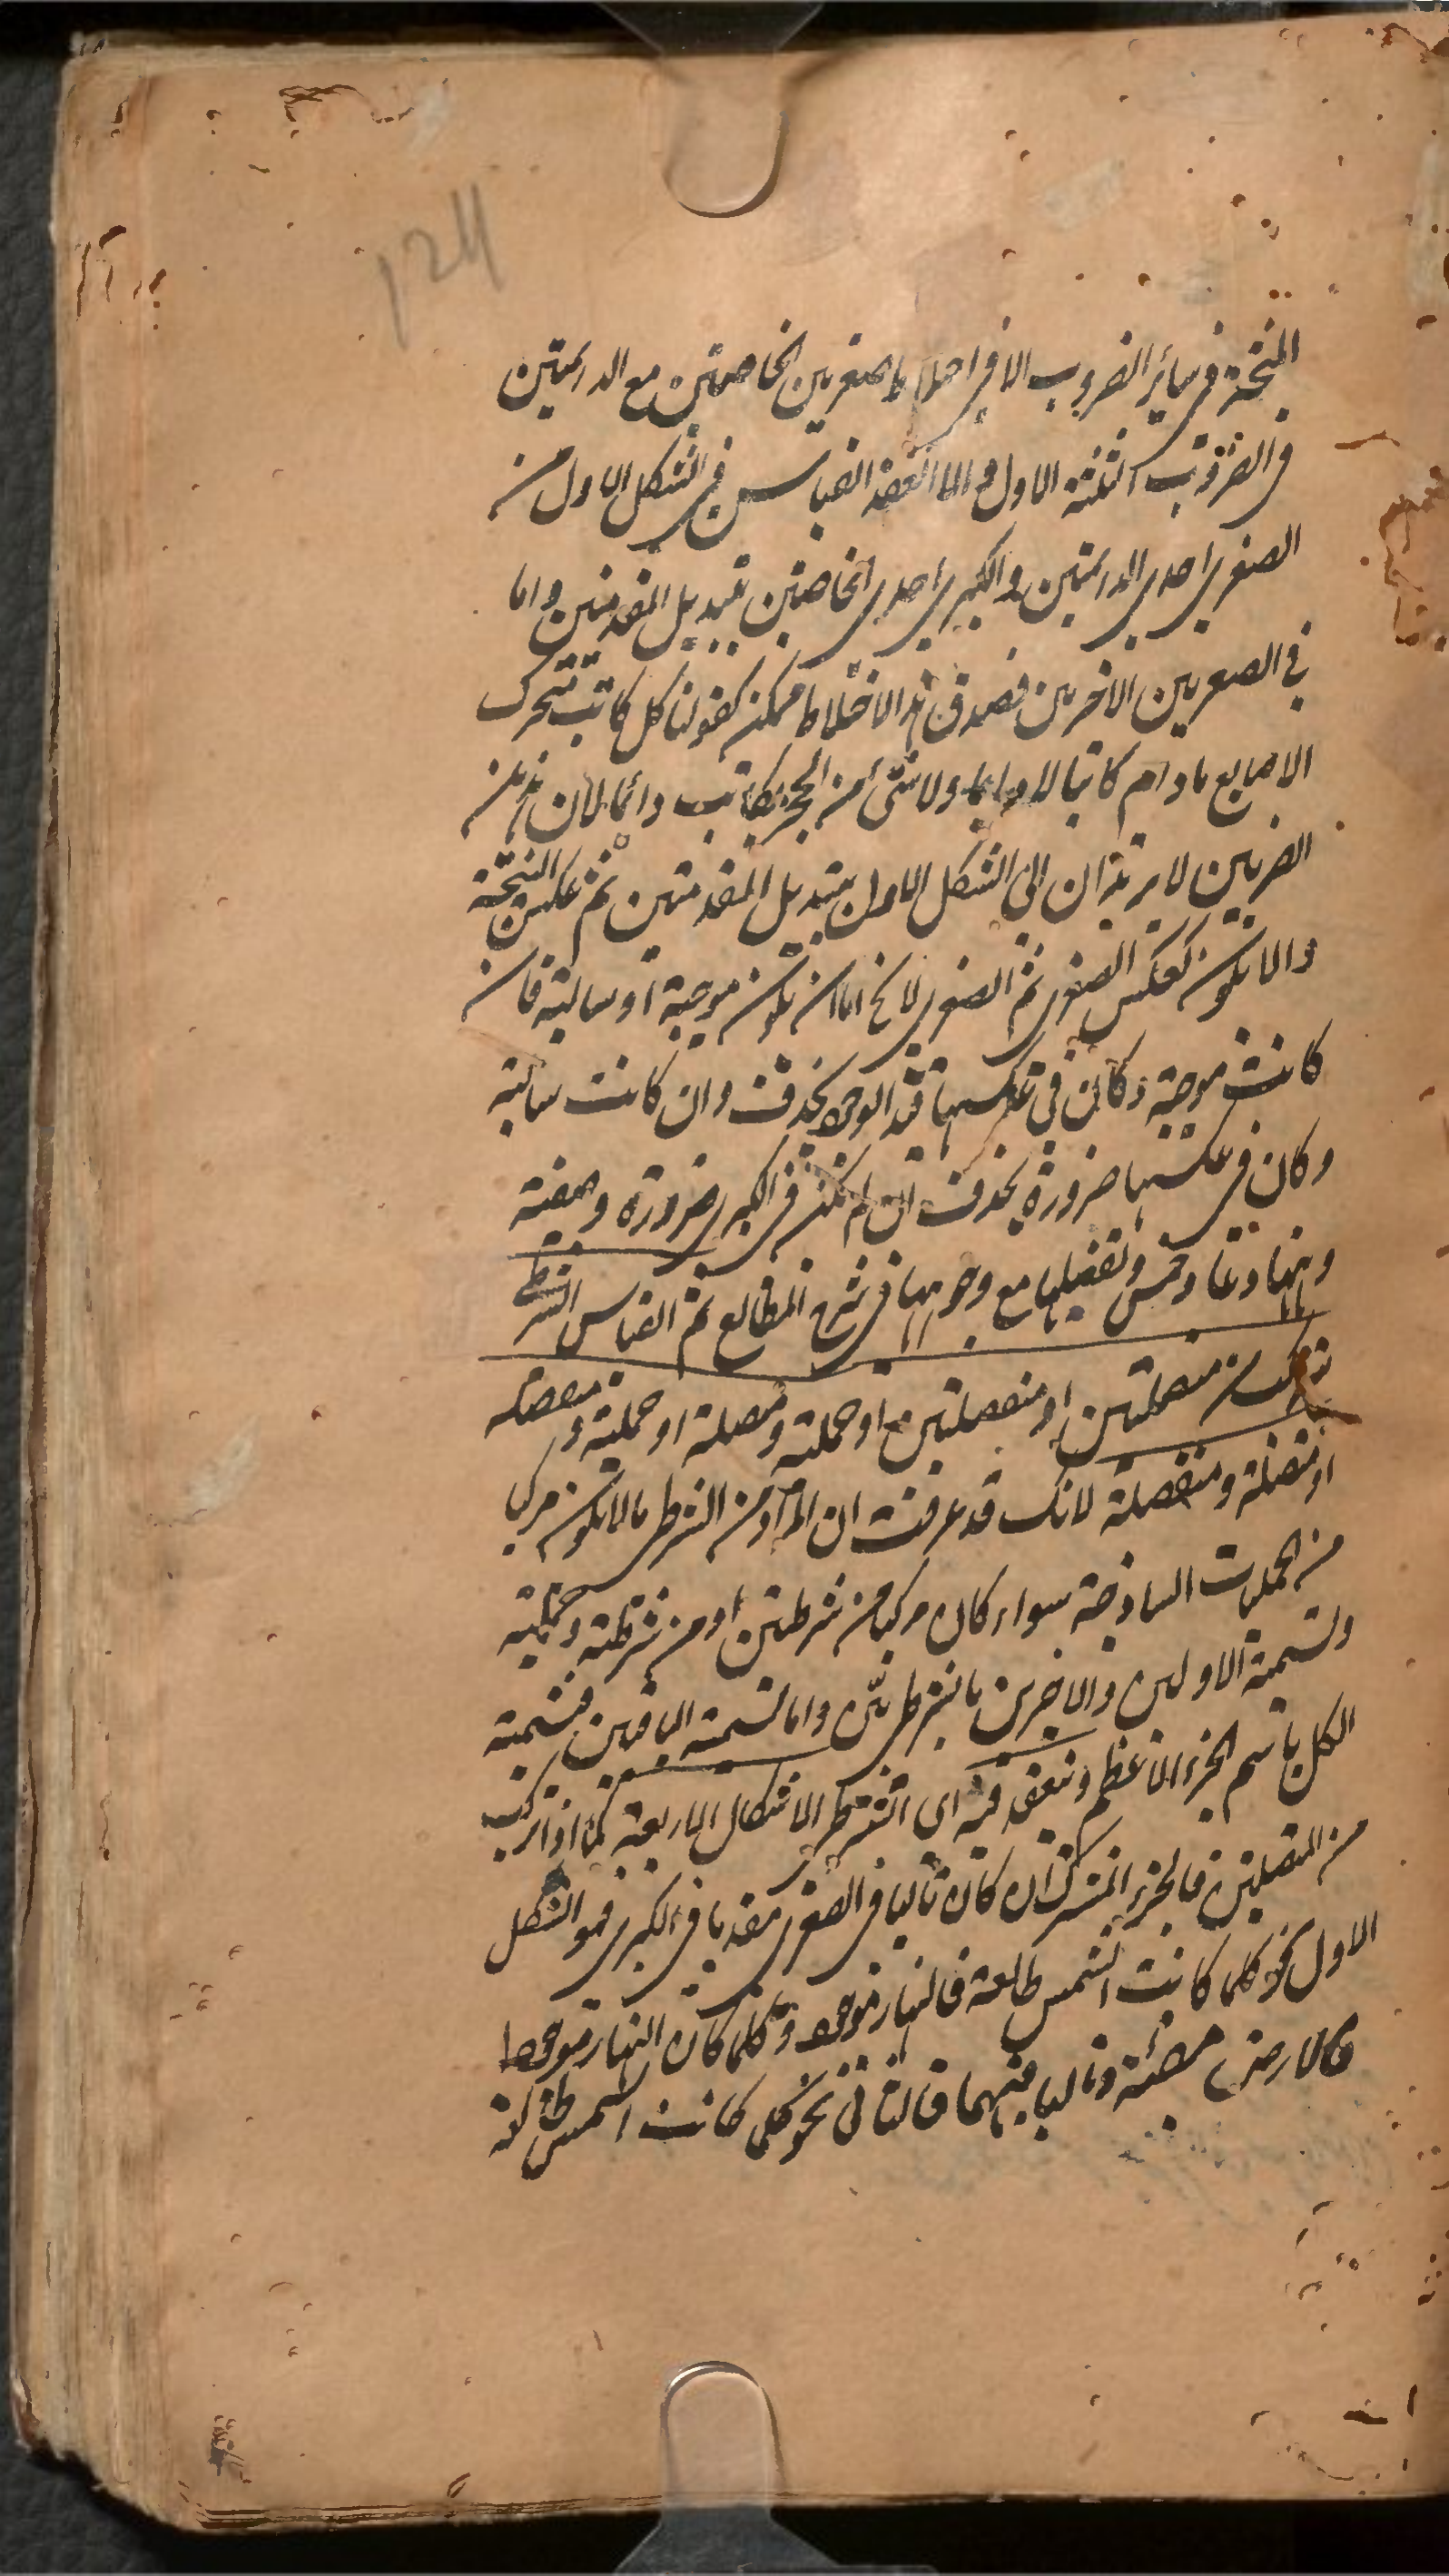 124
المنتجة فى سائر الضروب الا فى احدى الصغريين الخاصتين مع الدائمتين
فى الضروب الثلثة الاول والا انعقد القياس فى الشكل الاول من
الصغرى احدى الدائمتين والكبرى احدى الخاصتين بتبديل المقدمتين واما
فى الضربين الاخرين فصدق هذا الاختلاط ممكن كقولنا كل كاتب متحرك
الاصابع مادام كاتبا لا دايما ولا شئ من الحجر بكاتب دائما لان هذين
الضربين لا يرتدان الى الشكل الاول بتبديل المقدمتين ثم عكس النتيجة
والا يكون كعكس الصغرى ثم الصغرى لا يخ اما ان يكون موجبة او سالبة فان
كانت موجبة وكان فى عكسها قيد الوجود يحذف وان كانت سالبة
وكان فى عكسها ضرورة يحذف ان لم تكن فى الكبرى ضرورة وصفية
وتفصيلها مع وجوهها فى شرح المطالع ثم القياس الشرطى
يتركب من متصلتين او منفصلتين او حملية ومتصلة او حملية ومنفصلة
او متصلة ومنفصلة لانك قد عرفت ان المراد من الشرطى ما لا يكون مركبا
من الحمليات الساذجة سواء كان مركبا من شرطيتين او من شرطية وحملية
وتسمية الاولين والاخيرين بالشرطى بين واما تسمية الباقيين فتسمية
الكل باسم الجزء الاعظم وينعقد فيه اى الشرطى الاشكال الاربعة كما اذا تركب
من المتصلتين فالجزء المشترك ان كان تاليا فى الصغرى مقدما فى الكبرى فهو الشكل
الاول نحو كلما كانت الشمس طالعة فالنهار موجود وكلما كان النهار موجودا
فالارض مضيئة وتاليا فيهما فالثانى نحو كلما كانت الشمس طالعة